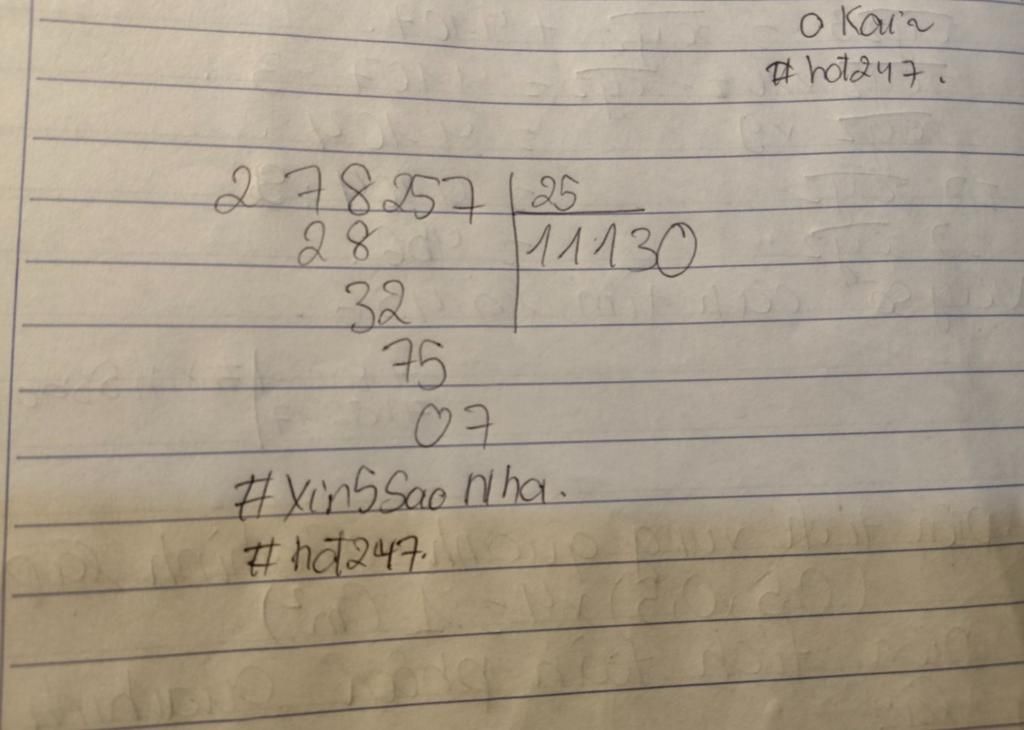 0 Kai~
#hot247.
278257 25
28 11130
32
75
07
#Xin5Sao nha.
#hot247.